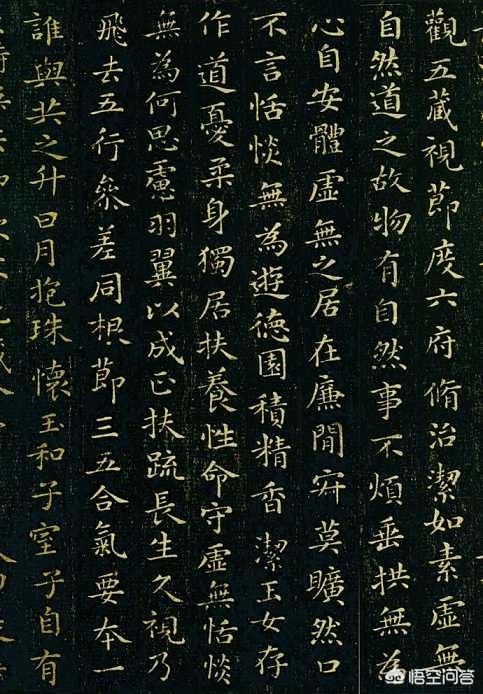 觀五藏視節度六府脩治潔如素虛無
自然道之故物有自然事不煩垂拱無為
心自安體虛無之居在廉閒寂莫曠然口
不言恬惔無為遊德園積精香潔玉女存
作道憂柔身獨居扶養性命守虛無恬惔
無為何思慮羽翼以成正扶疏長生久視乃
飛去五行參差同根節三五合氣要本一
誰與共之升日月抱珠懷玉和子室子自有
悟空问答